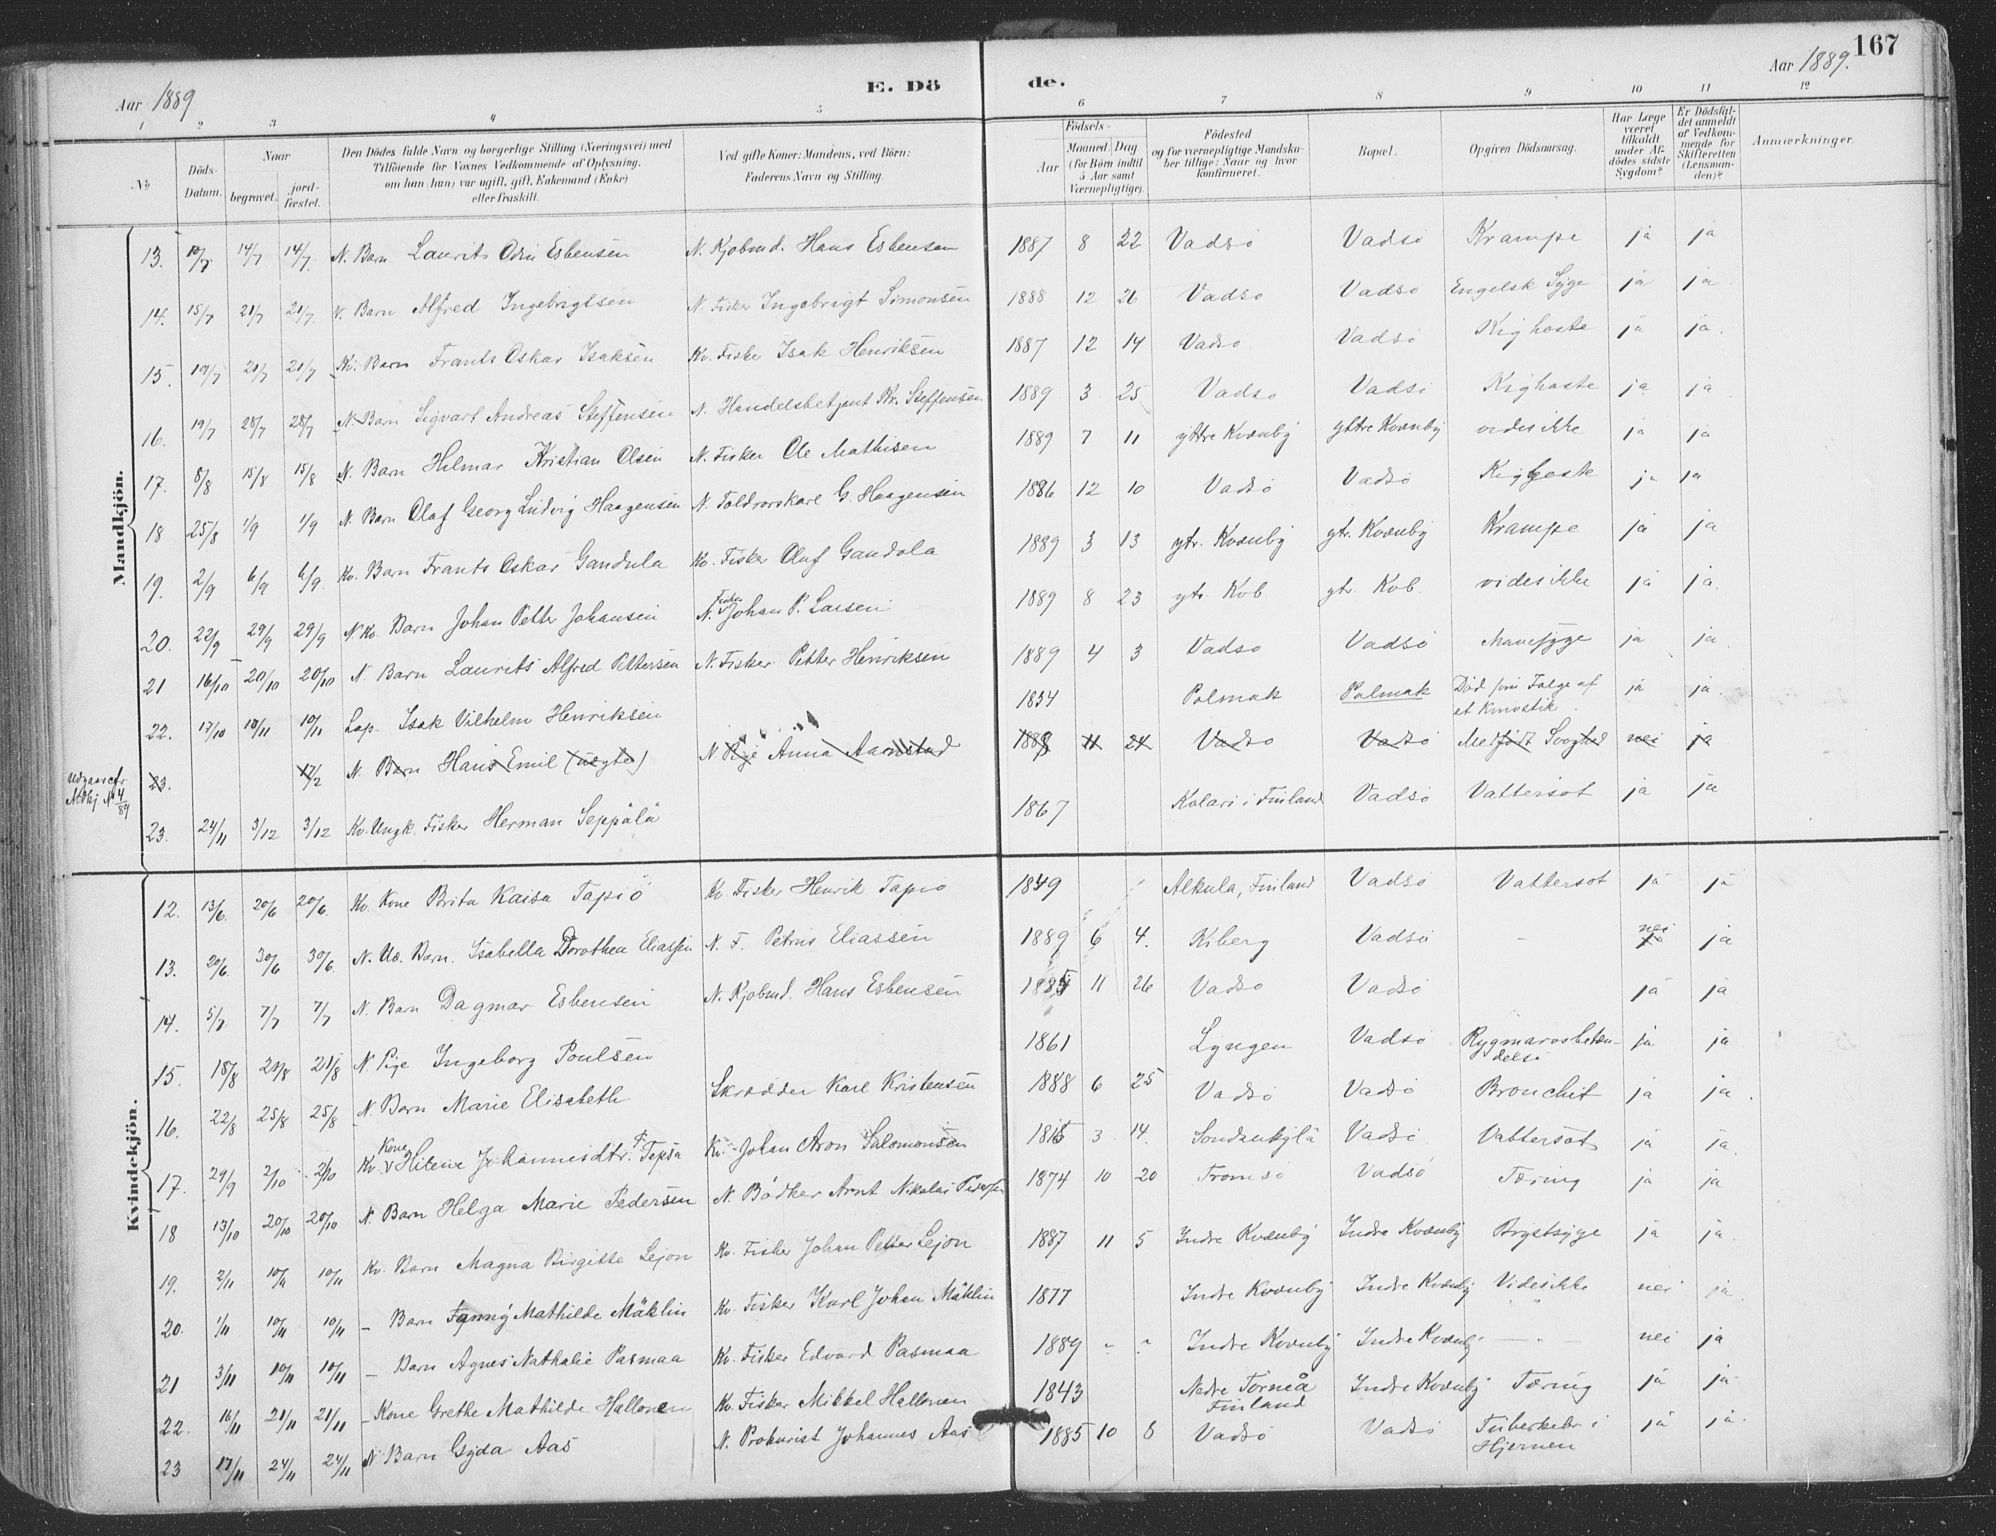 167
Aar 1889
E. Dö
de.
Aar 1889.
1 2 3 4 5 6 7 8 9 10 11 12
No
Döds-Datum.
Naar
begravet.
jord-fæstet.
Den Dödes fulde Navn og borgerlige Stilling (Næringsvei) med
Tilföiende for Voxnes Vedkommende af Oplysning,
om han (hun) var ugift, gift, Enkemand (Enke)
eller fraskilt.
Ved gifte Koner: Mandens, ved Börn:
Faderens Navn og Stilling.
Födsels-
Aar
Maaned. Dag
(for Börn indtil
5 Aar samt
Værnepligtige).
Födested
og for værnepligtige Mandska-
ber tillige: Naar og hvor
konfirmeret.
Bopæl.
Opgiven Dödsaarsag.
Har Læge
været
tilkaldt
under Af-
dödes sidste
Sygdom?
Er Dödsfal-
det anmeldt
af Vedkom-
mende for
Skifteretten
(Lensman-
den)?
Anmærkninger.
Mandkjön.
13. 10/7 14/7 14/7. N. Barn Laurits Odin Esbensen N. Kjøbmd. Hans Esbensen 1887 8 22 Vadsö Vadsö Krampe ja ja
14. 15/7 21/7 21/7. N. Barn Alfred Ingebrigtsen N. Fisker Ingebrigt Simonsen 1888 12 26 Vadsö Vadsö Engelsk Syge ja ja.
15. 19/7 21/7 21/7 Kv. Barn Frants Oskar Isaksen Kv. Fisker Isak Henriksen 1887 12 14 Vadsö Vadsö Kighoste ja ja.
16. 19/7 28/7 28/7 N. Barn Sigvart Andreas Steffensen N. Handelsbetjent Steffensen 1889 3 25 Vadsö Vadsö Kighoste ja ja
17. 8/8 15/8 15/8 N. Barn Hilmar Kristian Olsen N. Fisker Ole Mathisen 1889 7 11 yttre Kvænby yttre Kvænby vides ikke ja ja
18 25/8 1/9 1/9 N. Barn Olaf Georg Ludvig Haagensen N. Toldrorskarl G. Haagensen 1886 12 10 Vadsö Vadsö Kighoste ja ja
19. 2/9 6/9 6/9. Kv. Barn Frants Oskar Gandula Kv. Fisker Oluf Gandola 1889 3 13 ytr. Kvænby ytr. Kvænby Krampe ja ja
20. 22/9 29/9 29/9 N. Kv. Barn Johan Petter Johansen N. Fisker Johan P. Larsen 1889 8 23 ytr. Kvb. ytr. Kvb. vides ikke ja ja.
21 16/10 20/10 20/10 N. Barn Laurits Alfred Pettersen N. Fisker Petter Henriksen 1889 4 3 Vadsö Vadsö Mavesyge ja ja.
22. 17/10 10/11 10/11 Lap. Isak Vilhelm Henriksen 1834 Polmak Polmak Död som Følge af ja ja.
et Knivstik.
23. 17/2 N. Barn Hans Emil (uægte) N. Pige Anna Aarnstad 1888 11 24 Vadsö Vadsö Medfødt Svaghed nei ja
Udgaar cfr
Mdkj No 4/89
23. 24/11 3/12 3/12 Kv. Ungk. Fisker Herman Seppälä 1867 Kolari i Finland Vadsö Vattersot ja ja
Kvindekjön.
12. 13/6. 20/6 20/6. Kv. Kone Brita Kaisa Tapiö Kv. Fisker Henrik Tapio 1849 Alkula, Finland Vadsö Vattersot ja ja
13. 20/6. 30/6 30/6. N. Uæ. Barn. Isabella Dorothea Eliassen N. F. Petrus Eliassen 1889 6 4. Kiberg Vadsö - nei ja
14. 5/7 7/7 7/7 N. Barn Dagmar Esbensen N. Kjøbmd. Hans Esbensen 1885 11 26 Vadsö Vadsö ja ja
15. 18/8 21/8 21/8 N. Pige Ingeborg Poulsen 1861 Lyngen Vadsö Rygmarvsbetæn- ja ja
delse
16. 22/8 25/8 25/8 N. Barn Marie Elisabeth Skrædder Karl Kristensen 1888 6 25 Vadsö Vadsö Bronchit ja ja.
17. 29/9 2/10 2/10 Kv. Kone Hilene Johannesdtr. Tapsa Kv. Johan Aron Salomonsen 1815 3 14. Sondankylä Vadsö Vattersot ja ja.
18 13/10 20/10 20/10 N. Barn Helga Marie Pedersen N. Bödker Arnt Nikolai Pedersen 1874 10 20 Tromsö Vadsö Tæring ja ja
19. 2/11 10/11 10/11 Kv. Barn Magna Birgitte Lejon Kv. Fisker Johan Petter Lejon 1887 11 5 Indre Kvænby Indre Kvænby Brystsyge ja ja.
20. 1/11 10/11 10/11 - Barn Fanny Mathilde Mäklin Kv. Fisker Karl Johan Mäklin 1877 Indre Kvænby Indre Kvænby Vides ikke nei ja.
21 3/11 10/11 10/11 - Barn Agnes Nathalie Pasmaa Kv. Fisker Edvard Pasmaa 1889 " " Indre Kvænby Indre Kvænby - " - nei ja
22. 16/11 21/11 21/11 - Kone Grethe Mathilde Hallonen Kv. Fisker Mikkel Hallonen 1843 Nedre Torneå Indre Kvænby Tæring ja ja
Finland
23 17/11 24/11 24/11 N. Barn Gyda Aas N. Prokurist Johannes Aas 1885 10 8 Vadsö Vadsö Tuberkeler i ja ja
Hjernen